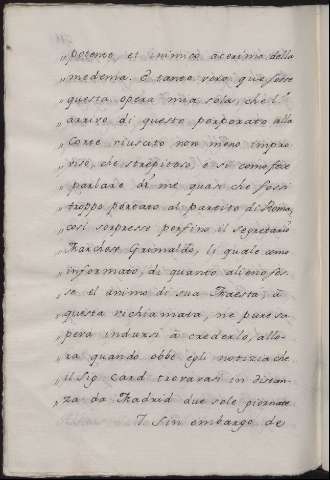 „ potente, et inimico acerimo della
„ medema. È tanto vero, que fosse
„ questa opera mia sola, che l'
„ arrivo di questo porporato alla
„ corte riuscito non meno impro
„ viso, che strepitoso, e si como fece
„ parlare di me quasi che fossi
„ troppo portato al partito di Roma,
„ cosi sorpresse perfino il segretario
„ Marchese Grimaldo, il quale como
„ informato, di quanto alieno fos-
„ se el animo di sua Maestà, à
„ questa richiamata, ne pure sa
„ peva indursi à crederlo, allo-
„ ra quando obbe egli notizia che
„ il Sig Card trovavasi in distan-
„ za da Madrid due sole giornate
Y sin embargo de